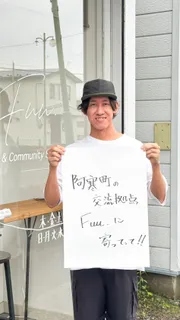 Fuu
& Community S
阿寒町の
交流拠点
Fuu.に
寄ってって!!